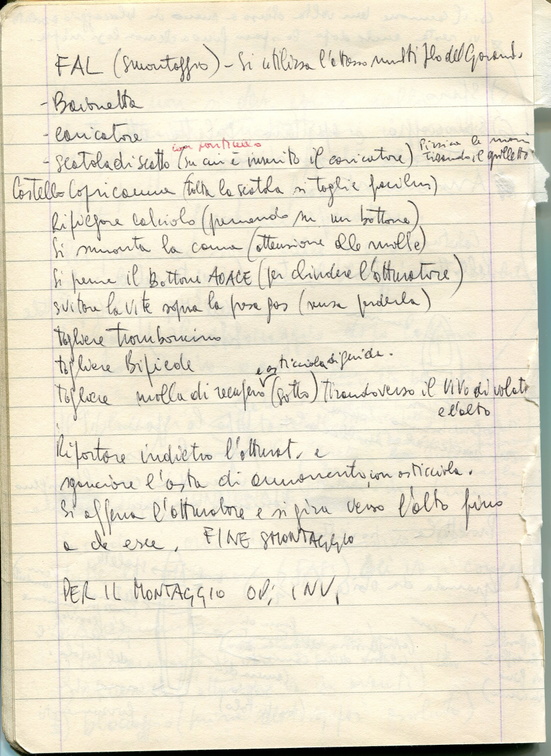 FAL (Smontaggio) - Si utilizza l'attrezzo multiplo del Garand
- Baionetta
- caricatore
con puntino
- scatola di scatto (su cui è inserito il caricatore) tirando il grilletto
Castello Copricanna (tolta la scatola si toglie facilm)
Ripiegare calciolo (premendo su un bottone)
Si smonta la canna (attenzione alle molle)
Si preme il Bottone ADACE (per chiudere l'otturatore)
svitare la vite sopra la presa gas (senza perderla)
togliere tromboncino
togliere Bipiede
e asticciola di guida.
togliere molla di recupero (sotto) tirando verso il vivo di volata
e l'alto
Riportare indietro l'otturat. e
sganciare l'asta di armamento, con asticciola.
Si afferra l'otturatore e si gira verso l'alto fino
a che esce. FINE SMONTAGGIO
PER IL MONTAGGIO OP. INV.